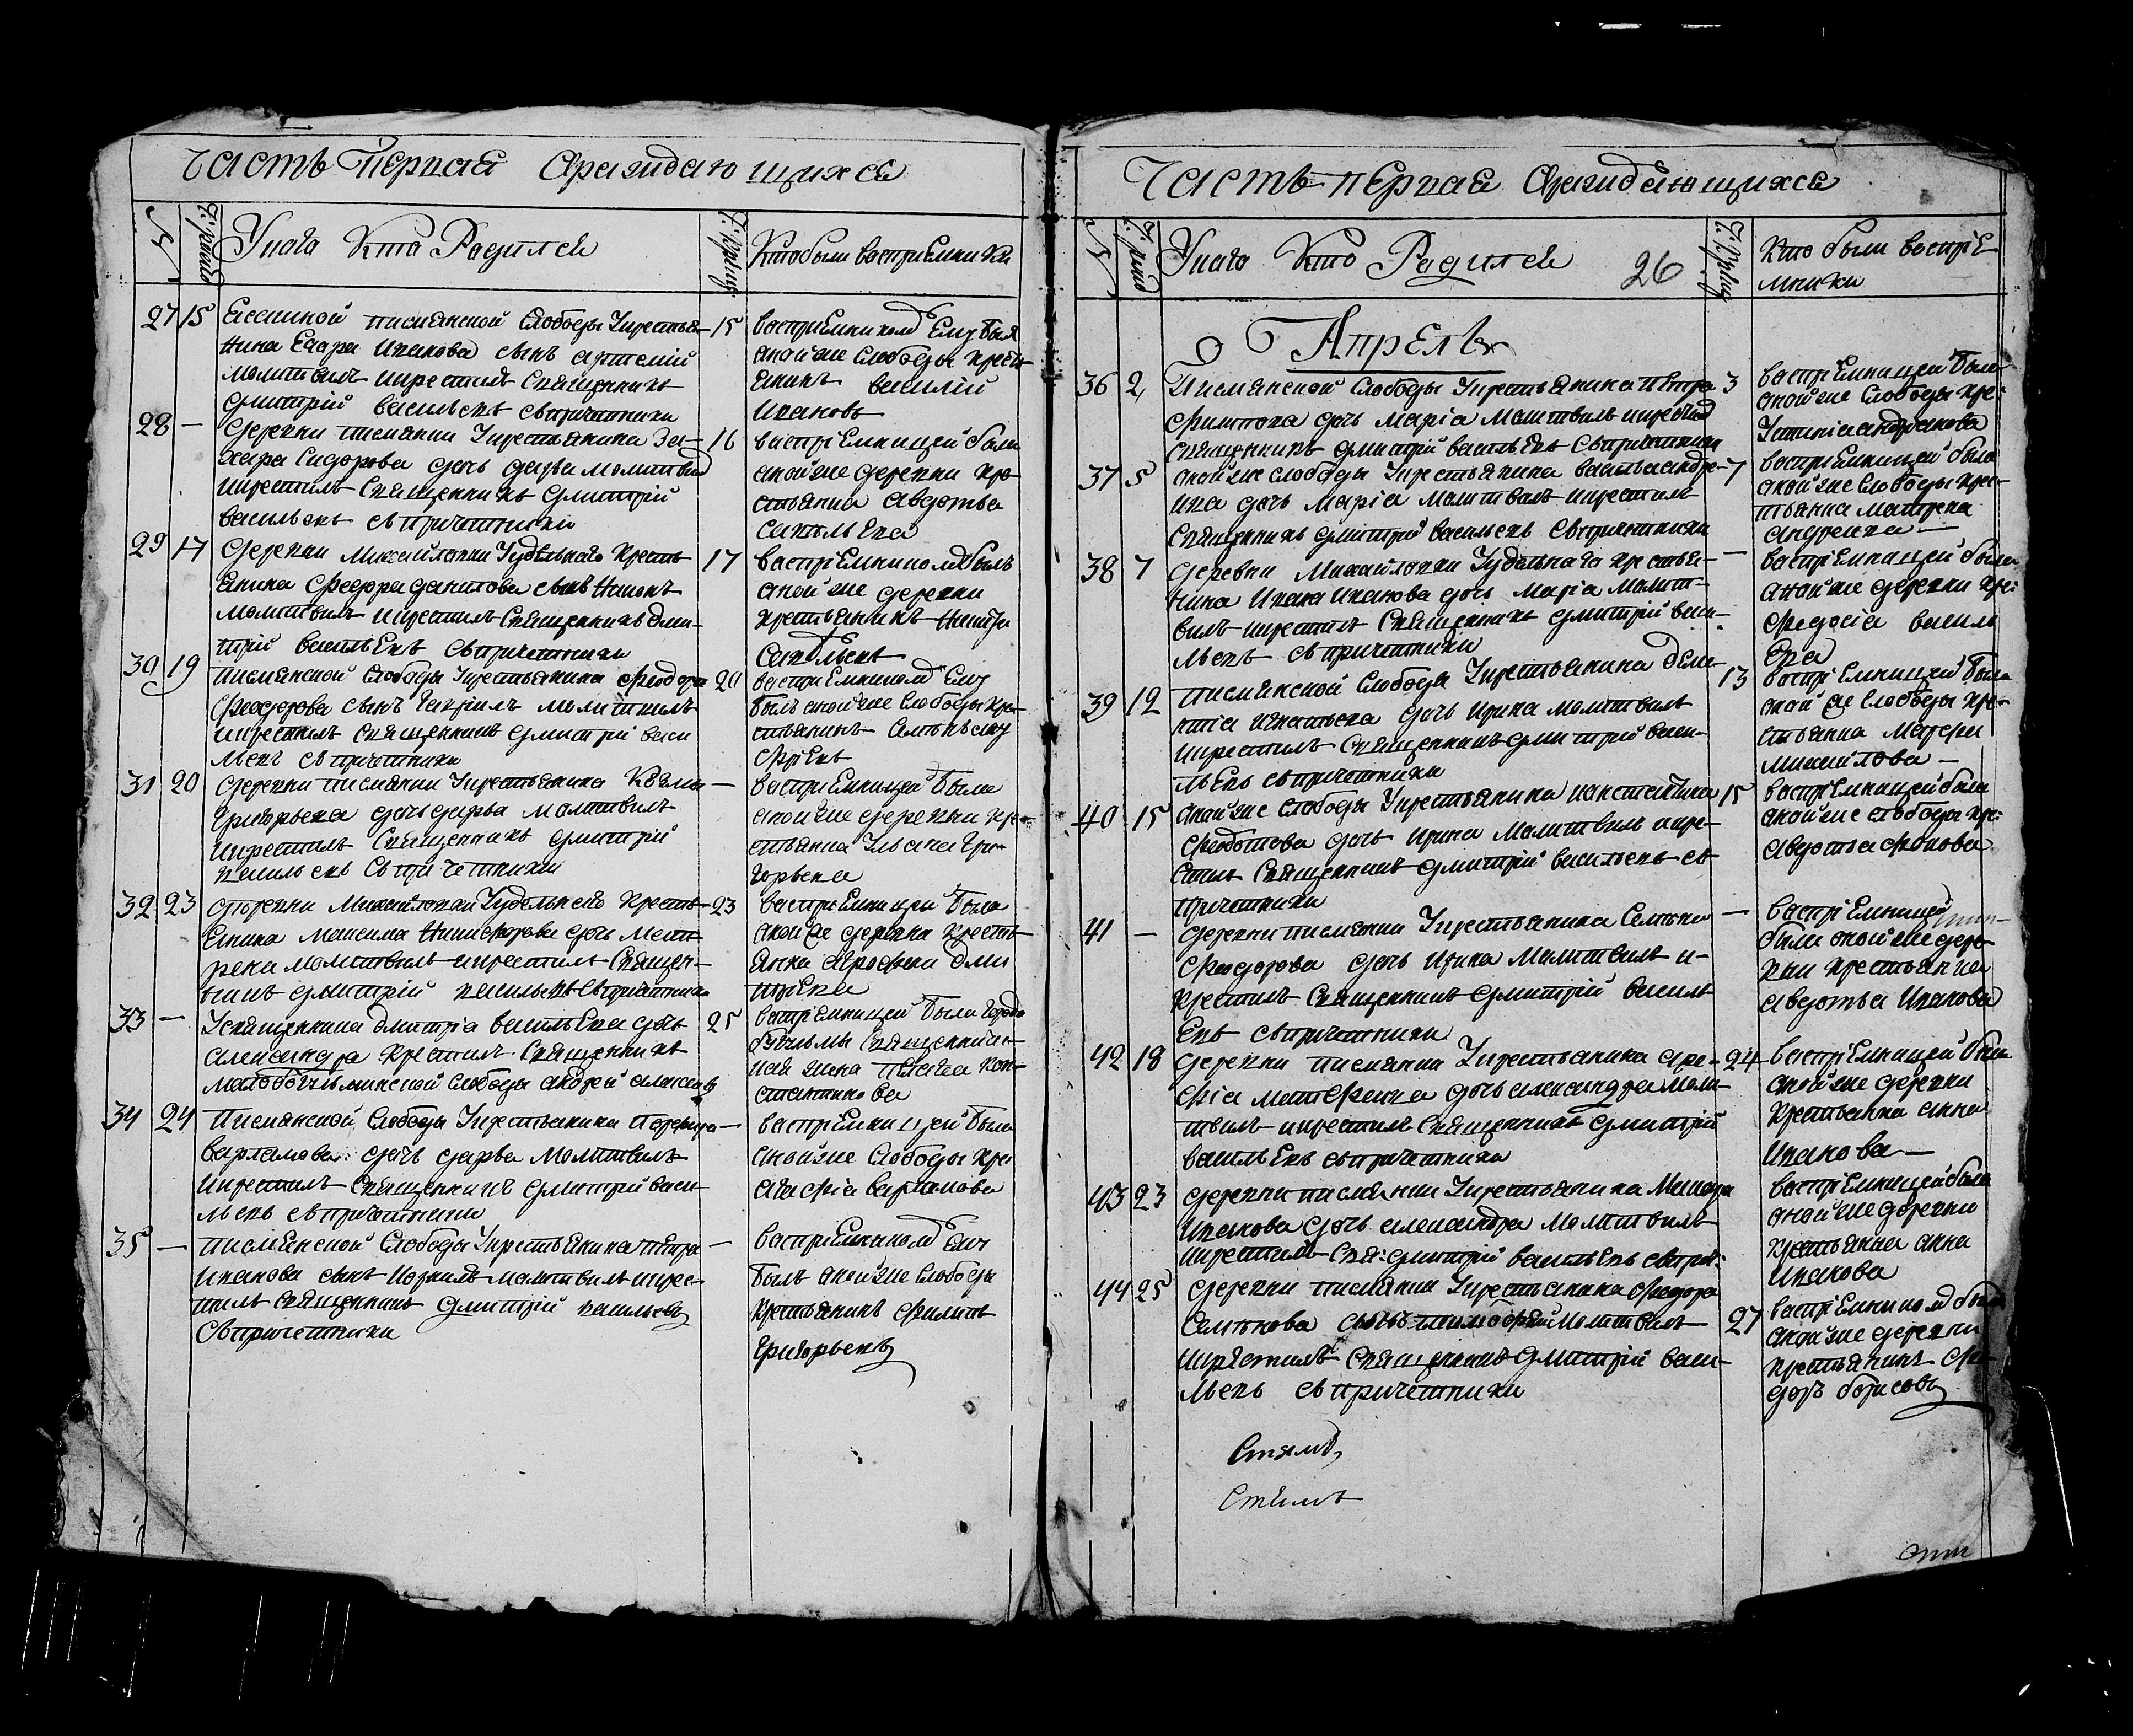 Часть Первая ѡраждающихся
№
Ч: рожд
Укого Кто Родился
Ч: Крещ
Кто были воспріемники
27 15
писмянской Слободы Укрестья-
нина Егора Иванова сынъ артемій
молитвилъ икрестилъ Священникъ
Дмитрій Васильевъ спричетники
15
воспріемникомъ Ему былъ
оной же Слободы кресть
янинъ василій
Ивановъ
28 —
Деревни писмянки Укрестьянина За-
хара Сидорова дочь дарья молитвилъ
икрестилъ Священникъ Дмитрій
васильевъ спричетники
16
воспріемницей была
оной же деревни кре
стьянка авдотья
савельева
29 17
Деревни Михайловки Удѣльнаго кресть
янина Федора данилова сынъ Никонъ
молитвилъ икрестилъ Священникъ дми-
трій васильевъ спричетники
17
воспріемникомъ былъ
оной же деревни
крестьянинъ
Савельевъ
30 19
писмянской Слободы Укрестьянина Феодора
Феодорова сынъ Гаврилъ молитвилъ
икрестилъ Священникъ Дмитрій васи
льевъ спричетники
20
воспріемникомъ Ему
былъ оной же Слободы кре-
стьянинъ Семенъ
31 20
Деревни писмянки Укрестьянина Козмы
Григорьева дочь дарья молитвилъ
икрестилъ Священникъ Дмитрій
васильевъ Спричетники
—
воспріемницей была
оной же деревни кре-
стьянка Ульяна Гри-
горьева
32 23
Деревни Михайловки Удѣльнаго кресть-
янина Максима Никифорова дочь Мат-
рена молитвилъ икрестилъ Священ-
никъ Дмитрій васильевъ Спричетники
23
воспріемницей была
оной же деревни кресть-
янка Ефросинья дми
тріева
33 —
Усвященника Дмитріа васильева дочь
александра крестилъ Священникъ
малобугульминской Слободы андрей алексѣевъ
25
воспріемницей была города
бугульмы Священническ-
кая жена Пелагея Кон-
стантинова
34 24
Писмянской Слободы Укрестьянина Порфира
варламова дочь дарья молитвилъ
икрестилъ Священникъ Дмитрій васи-
льевъ спричетники
—
воспріемницей была
оной же Слободы кре:
агафіа варламова
35 —
писмянской Слободы Укрестьянина петра
Иванова сынъ Кирилъ молитвилъ икрес-
тилъ Священникъ Дмитрій васильевъ
Спричетники
—
воспріемникомъ Ему
былъ оной же Слободы
крестьянинъ Филипъ
Григорьевъ
Часть первая ѡраждающихся
№
Ч: рожд
Укого Кто Родился
26
Ч: Крещ
Кто были воспріе-
мники
Апрель
36 2
Писмянской Слободы Укрестьянина петра
Филипова дочь марія молитвилъ икрестилъ
Священникъ Дмитрій васильевъ Спричетники
3
воспріемницей была
оной же Слободы кре:
Устиніа андрианова
37 5
оной же слободы Укрестьянина василья андре-
ива дочь марія молитвилъ икрестилъ
Священникъ Дмитрій васильевъ Спричетники
7
воспріемницей была
оной же Слободы крес-
тьянка матрена
андреива —
38 7
Деревни Михайловки Удѣльнаго крестья-
нина Ивана Иванова дочь Марія молит-
вилъ икрестилъ Священникъ Дмитрій васи-
льевъ спричетники
—
воспріемницей была
оной же деревни кре:
Федосіа василь
ева
39 12
писмянской Слободы Укрестьянина деме-
нтіа игнатьева дочь Ирина молитвилъ
икрестилъ Священникъ Дмитрій васи-
льевъ спричетники
13
воспріемницей была
оной же Слободы кре-
стьянка Марфа
михайлова —
40 15
оной же слободы Укрестьянина константина
Федотова дочь Ирина молитвилъ икре-
стилъ Священникъ Дмитрій васильевъ съ
причетники
15
воспріемницей была
оной же слободы кре:
авдотья фокова
41 —
Деревни писмянки Укрестьянина Семѣна
Феодорова дочь Ирина молитвилъ и-
крестилъ Священникъ Дмитрій василь
евъ спричетники
—
воспріемницей
были оной же дере
вни крестьянка
авдотья Иванова
42 18
Деревни писмянки Укрестьянина аре-
фіа матфеива дочь александра моли-
твилъ икрестилъ Священникъ Дмитрій
васильевъ спричетники
24
воспріемницей была
оной же деревни
крестьянка анна
Иванова —
43 23
Деревни писмянки Укрестьянина Макара
Иванова дочь александра молитвилъ
икрестилъ Свя: Дмитрій васильевъ спри:
воспріемницей была
оной же деревни
крестьянка анна
Иванова
44 25
Деревни писмянки Укрестьянина Феодора
Семѣнова сынъ тимофей молитвилъ
икрестилъ Священникъ Дмитрій васи-
льевъ спричетники
27
воспріемникомъ былъ
оной же деревни
крестьянинъ Фе-
доръ борисовъ